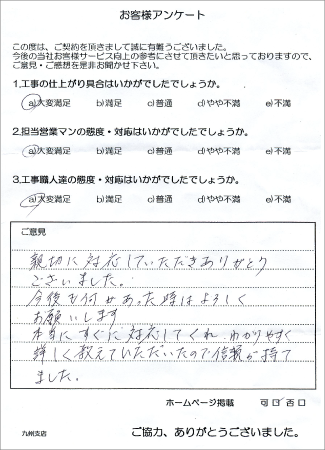 お客様アンケート
この度は、ご契約を頂きまして誠に有難うございました。
今後の当社お客様サービス向上の参考にさせて頂きたいと思っておりますので、
ご意見・ご感想を是非お聞かせ下さい。
1.工事の仕上がり具合はいかがでしたでしょうか。
a)大変満足 b)満足 c)普通 d)やや不満 e)不満
2.担当営業マンの態度・対応はいかがでしたでしょうか。
a)大変満足 b)満足 c)普通 d)やや不満 e)不満
3.工事職人達の態度・対応はいかがでしたでしょうか。
a)大変満足 b)満足 c)普通 d)やや不満 e)不満
ご意見
親切に対応していただきありがとう
ございました。
今後も何せあった時はよろしく
お願いします
本当にすぐに対応してくれ、わかりやすく
詳しく教えていただいたので信頼が持て
ました。
ホームページ掲載 可口否口
九州支店
ご協力、ありがとうございました。